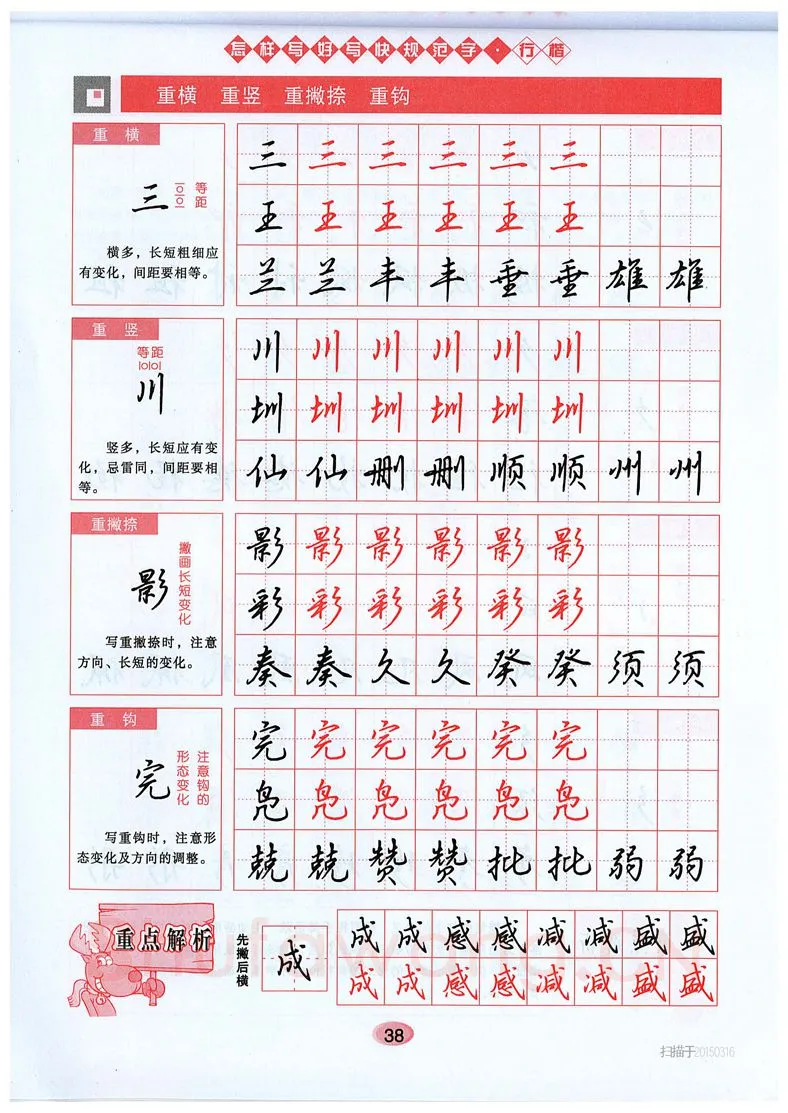 怎样写好写快规范字·行楷
重横 重竖 重撇捺 重钩
重横
三
等距
横多,长短粗细应
有变化,间距要相等。
三 三 三 三 三 三
王 王 王 王 王 王
兰 兰 丰 丰 垂 垂 雄 雄
重竖
等距
川
竖多,长短应有变
化,忌雷同,间距要相
等。
川 川 川 川 川 川
圳 圳 圳 圳 圳 圳
仙 仙 删 删 顺 顺 州 州
重撇捺
影
撇画长短变化
写重撇捺时,注意
方向、长短的变化。
影 影 影 影 影 影
彩 彩 彩 彩 彩 彩
奏 奏 久 久 癸 癸 须 须
重钩
完
注意钩的
形态变化
写重钩时,注意形
态变化及方向的调整。
完 完 完 完 完 完
凫 凫 凫 凫 凫 凫
兢 兢 赞 赞 批 批 弱 弱
重点解析
先撇后横
成
成 成 感 感 减 减 盛 盛
成 成 感 感 减 减 盛 盛
38
扫描于20150316